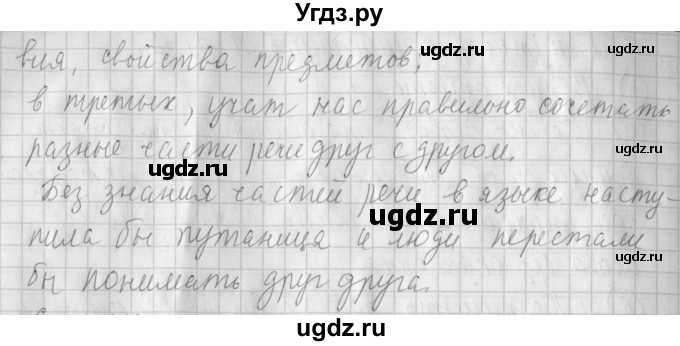 Угдз.ру
вия, свойства предметов;
в третьих, учат нас правильно сочетать
разные части речи друг с другом.
Без знания частей речи в языке насту-
пила бы путаница и люди перестали
бы понимать друг друга.
ugdz.ru
ugdz.ru
ugdz.ru
ugdz.ru
ugdz.ru
ugdz.ru
ugdz.ru
ugdz.ru